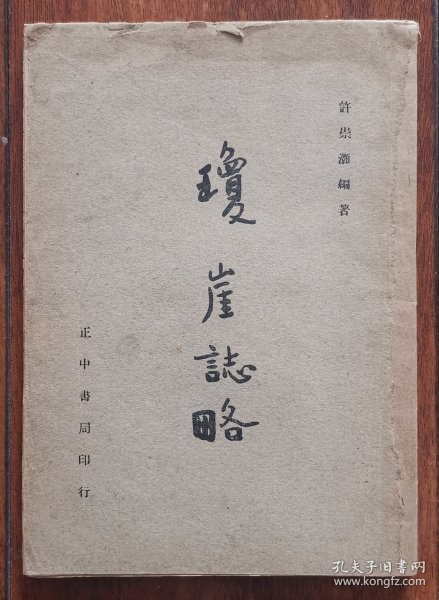 許崇灝編著
瓊崖誌略
正中書局印行
孔夫子旧书网
www.kongfz.com